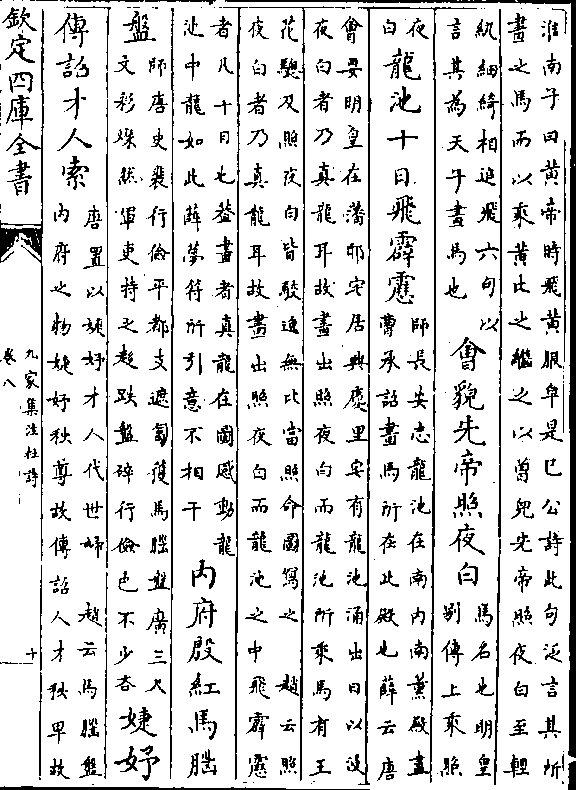 淮南子曰黃帝時飛黃服皁是已公詩此句泛言其所
畫之馬而以乘黃比之繼之以曾貌先帝照夜白至輕
紈細綺相追飛六句以
言其為天子畫馬也
曾貌先帝照夜白
馬名也明皇
別傳上乘照
夜
白
龍池十日飛霹靂
師長安志龍池在南内南薰殿畫
曹承詔畫馬所在此殿也薛云唐
會要明皇在藩邸宅居興慶里宅有龍池涌出日以浸
夜白者乃真龍耳故畫出照夜白而龍池所乘馬有玉
花驄及照夜白皆駿逸無比當照命圖寫之 趙云照
夜白者乃真龍耳故畫出照夜白而龍池之中飛霹靂
者凡十日也蓋畫者真龍在圖感動龍
池中龍如此薛夢符所引意不相干
内府殷紅馬腦
盤
師唐史裴行儉平都支遮匐獲馬腦盤廣三尺
文彩殊絶軍吏持之趨跌盤碎行儉色不少吝
婕妤
傳詔才人索
唐置以婕妤才人代世婦 趙云馬腦盤
内府之物婕妤秩尊故傳詔人才秩卑故
欽定四庫全書
九家集注杜詩
卷八
十